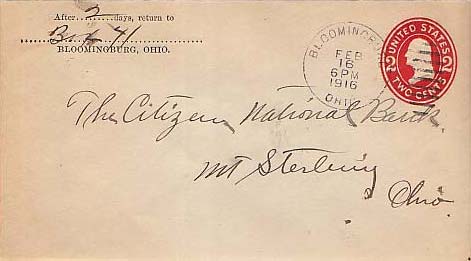 After 2 days, return to
Box 41
BLOOMINGBURG, OHIO.
BLOOMINGBURG
FEB
16
6 PM
1916
OHIO
UNITED STATES
2 2
TWO CENTS
The Citizen National Bank.
Mt Sterling
Ohio.